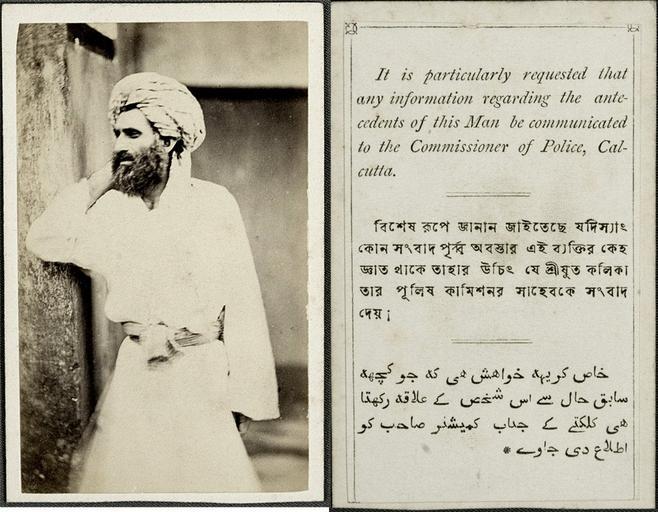 It is particularly requested that
any information regarding the ante-
cedents of this Man be communicated
to the Commissioner of Police, Cal-
cutta.
বিশেষ রূপে জানান জাইতেছে যদিস্যাৎ
কোন সংবাদ পূর্ব্ব অবস্তার এই ব্যক্তির কেহ
জ্ঞাত থাকে তাহার উচিৎ যে শ্রীষুত কলিকা
তার পূলিষ কামিশনর সাহেবকে সংবাদ
দেয়।
خاص کر یهه خواهش هی که جو کچهه
سابق حال سے اس شخص کے علاقه رکهتا
هی کلکتے کے جناب کمیشنر صاحب کو
اطلاع دی جاوے *